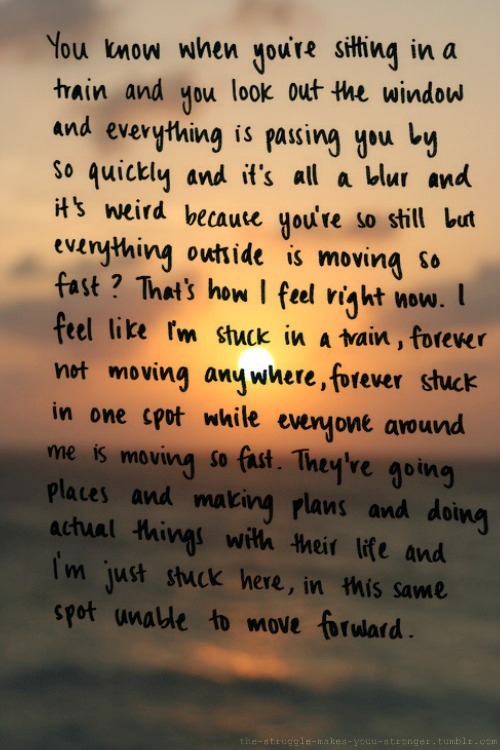 You know when you're sitting in a
train and you look out the window
and everything is passing you by
so quickly and it's all a blur and
it's weird because you're so still but
everything outside is moving so
fast? That's how I feel right now. I
feel like I'm stuck in a train, forever
not moving anywhere, forever stuck
in one spot while everyone around
me is moving so fast. They're going
places and making plans and doing
actual things with their life and
I'm just stuck here, in this same
spot unable to move forward.
the-struggle-makes-youu-stronger.tumblr.com